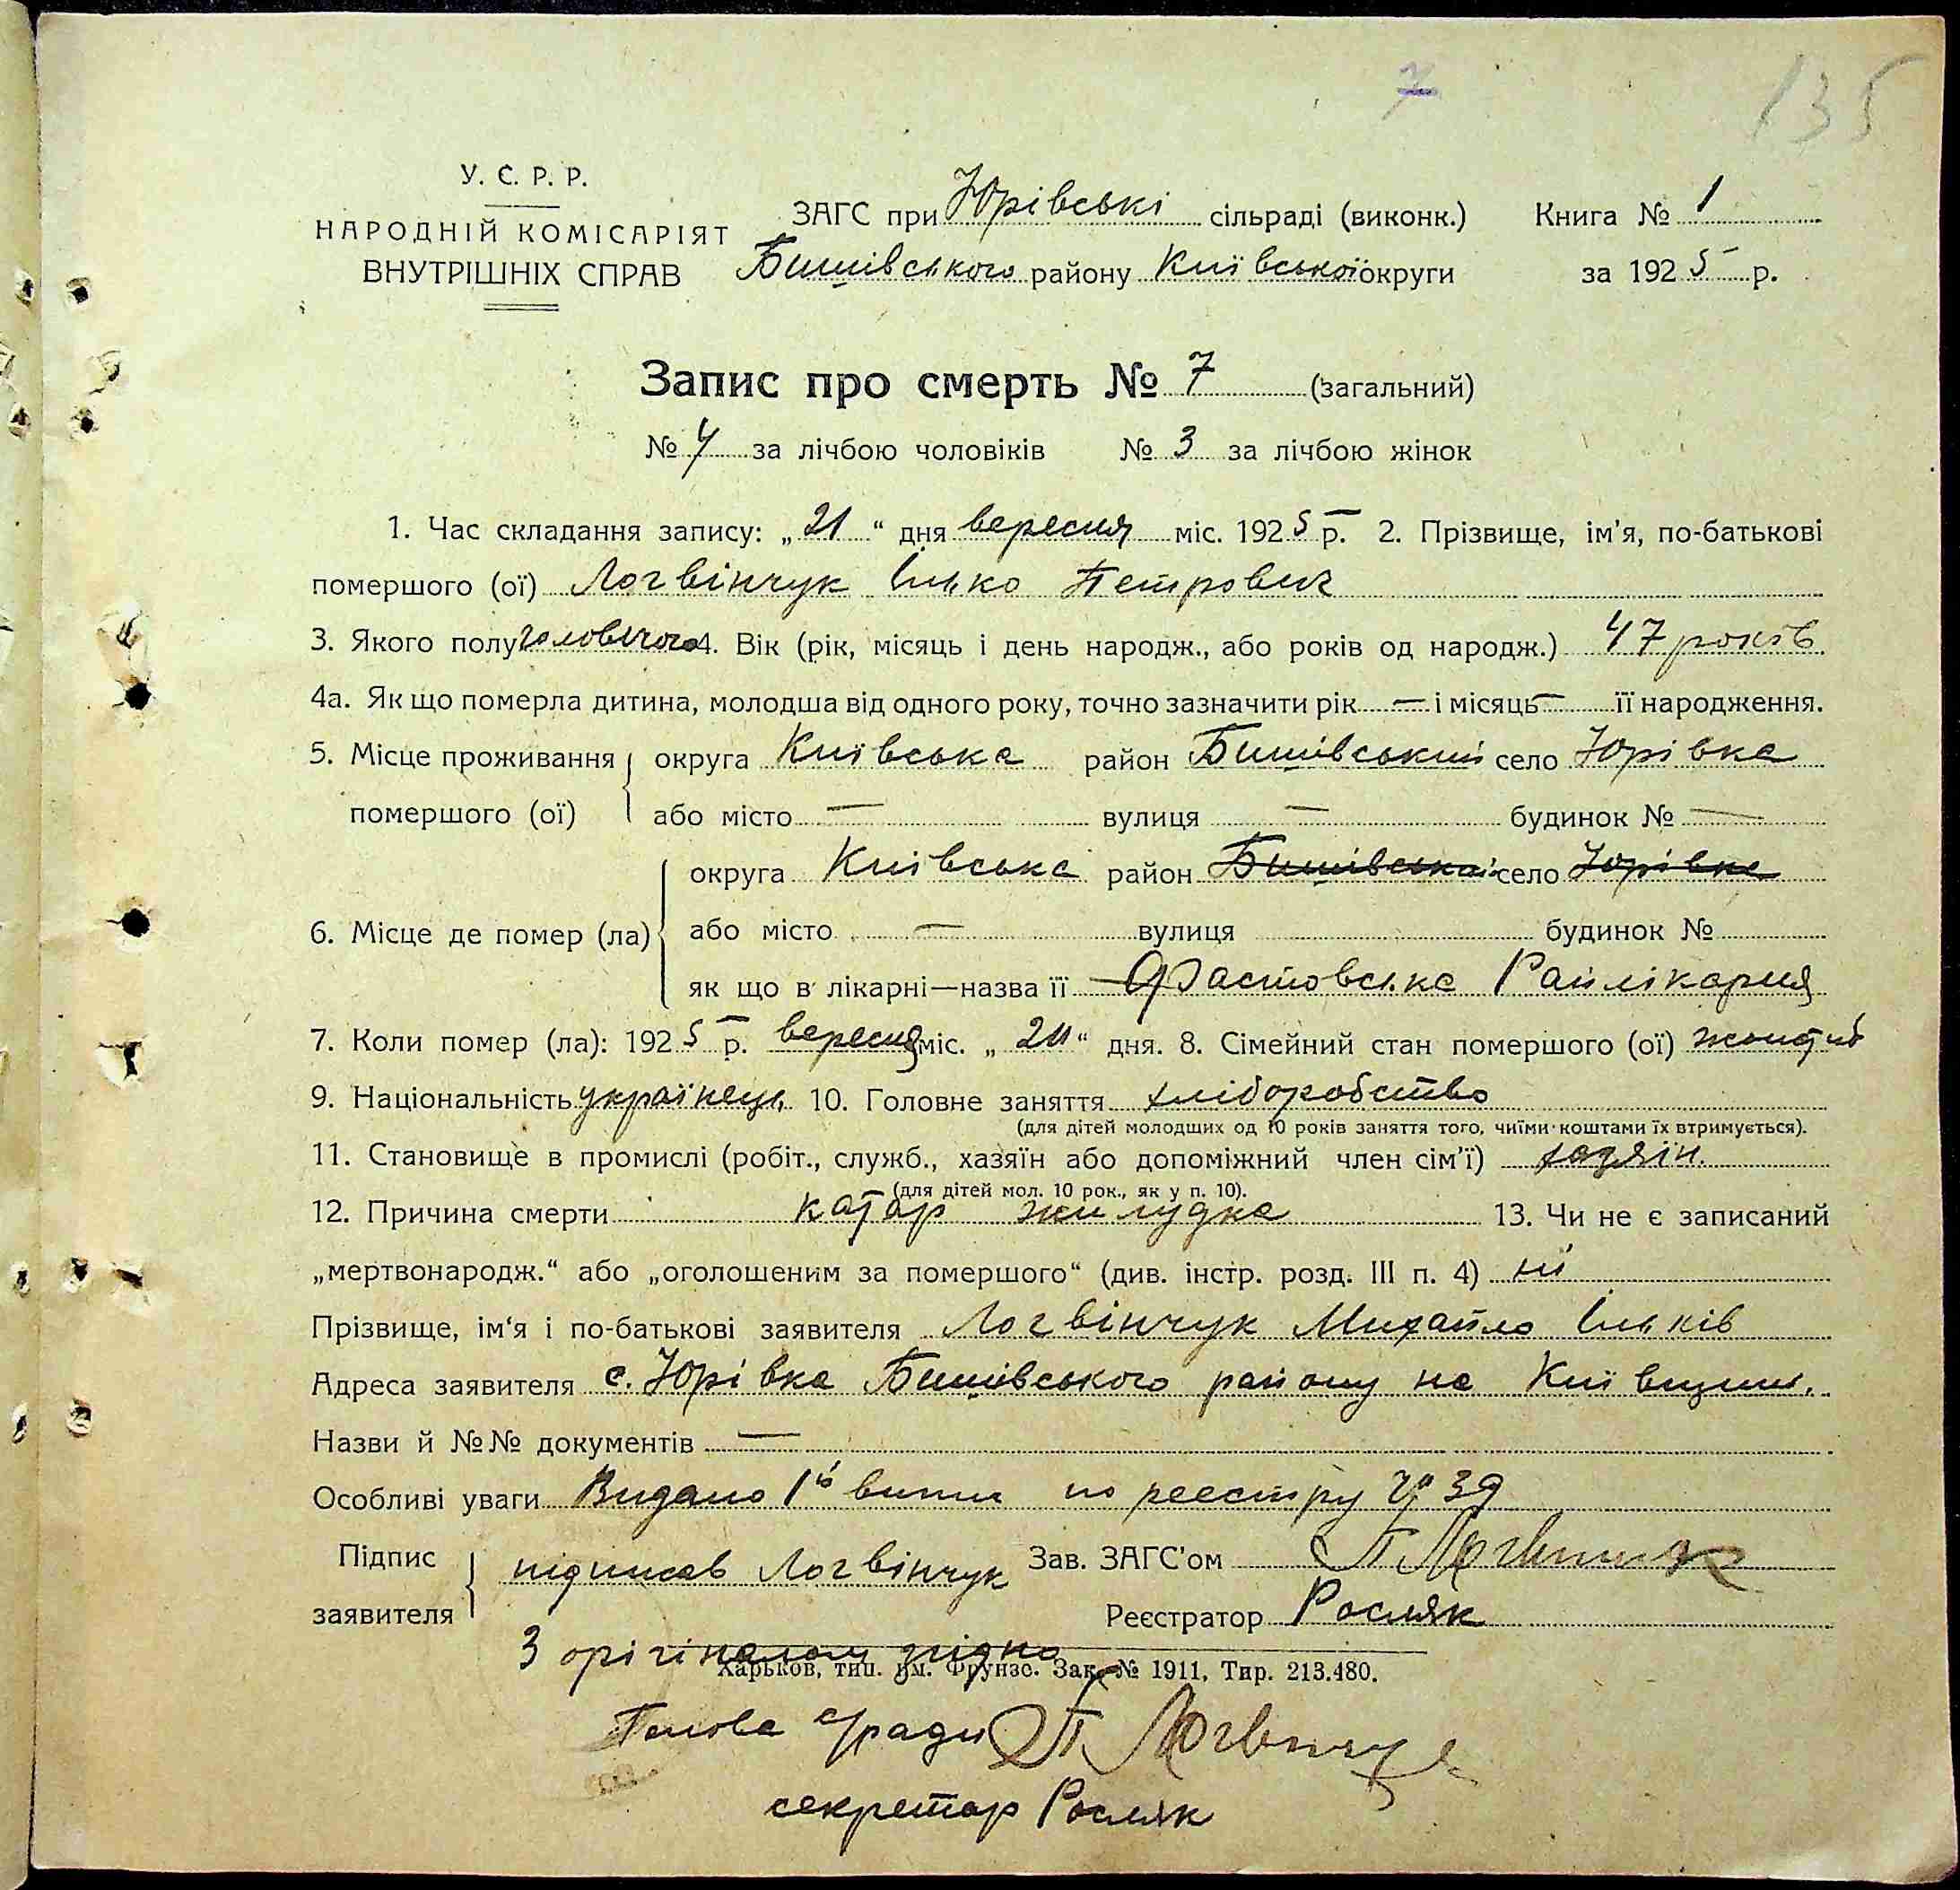 7
135
У. С. Р. Р.
НАРОДНІЙ КОМІСАРІЯТ
ВНУТРІШНІХ СПРАВ
ЗАГС при Юрівські сільраді (виконк.) Книга № 1
Бишівського району Київської округи за 1925 р.
Запис про смерть № 7 (загальний)
№ 4 за лічбою чоловіків № 3 за лічбою жінок
1. Час складання запису: „21“ дня вересня міс. 1925 р. 2. Прізвище, ім'я, по-батькові
помершого (ої) Логвінчук Ілько Петрович
3. Якого полу чоловічого 4. Вік (рік, місяць і день народж., або років од народж.) 47 років
4а. Як що померла дитина, молодша від одного року, точно зазначити рік — і місяць — її народження.
5. Місце проживання округа Київська район Бишівський село Юрівка
помершого (ої) або місто — вулиця — будинок № —
округа Київська район Бишівський село Юрівка
6. Місце де помер (ла) або місто — вулиця будинок №
як що в лікарні—назва її Фастовська Райлікарня
7. Коли помер (ла): 1925 р. вересня міс. „ “ дня. 8. Сімейний стан помершого (ої)
9. Національність українець 10. Головне заняття хліборобство
(для дітей молодших од 10 років заняття того, чиїми коштами їх втримується).
11. Становище в промислі (робіт., служб., хазяїн або допоміжний член сім'ї) хазяїн.
(для дітей мол. 10 рок., як у п. 10).
12. Причина смерти катар жилудка 13. Чи не є записаний
„мертвонародж.“ або „оголошеним за помершого“ (див. інстр. розд. III п. 4) ні
Прізвище, ім'я і по-батькові заявителя Логвінчук Михайло Ільків
Адреса заявителя с. Юрівка Бишівського району на Київщині.
Назви й №№ документів —
Особливі уваги Видано 1й витяг по реєстру № 39
Підпис підписав Логвінчук Зав. ЗАГС'ом П Логвинчук
заявителя Реєстратор Росляк
З орігіналом згідно
Харьков, тип. им. Фрунзе. Зак. № 1911, Тир. 213.480.
Голова с/ради П. Логвинчук
секретар Росляк